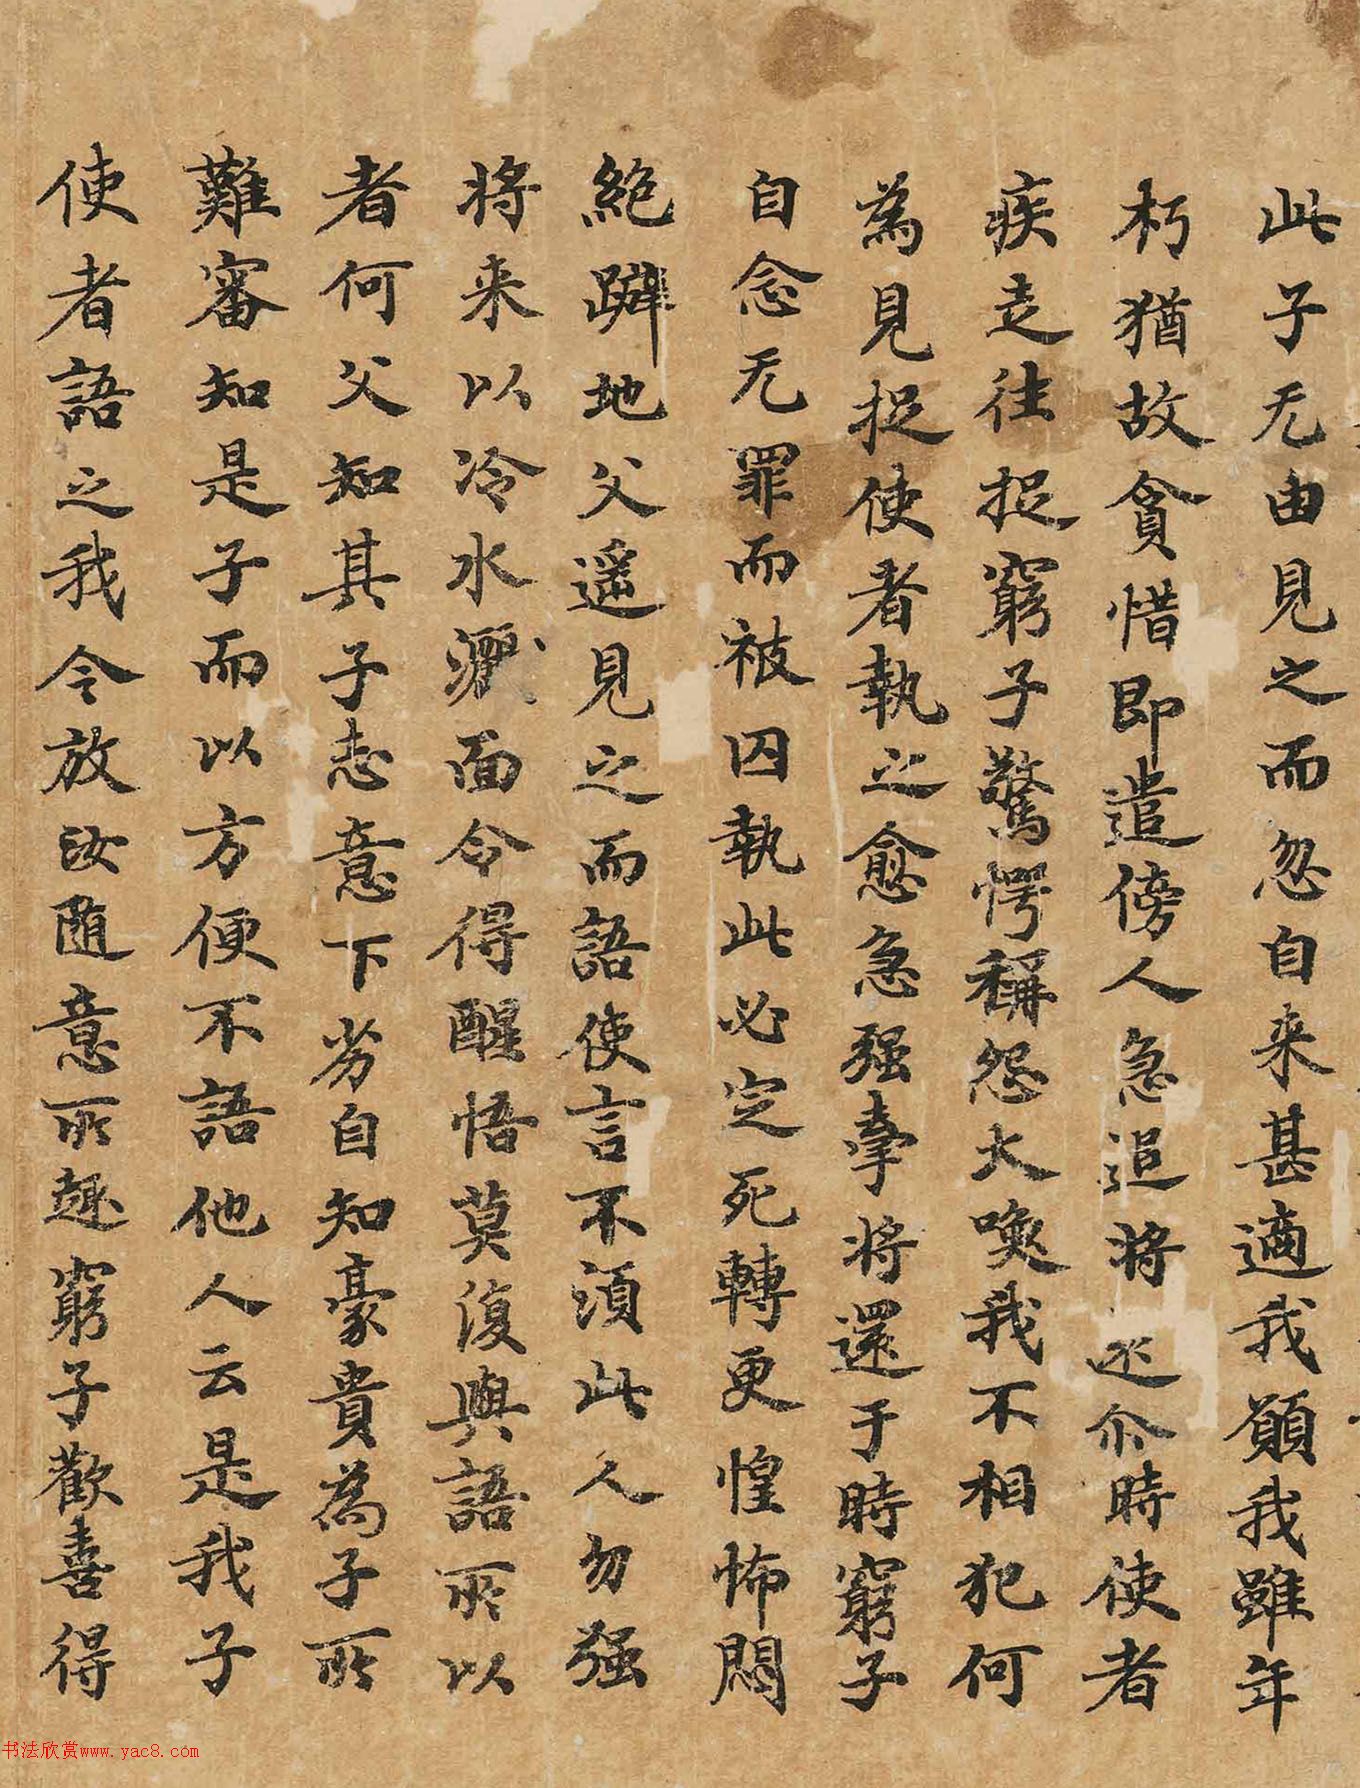 此子无由見之而忽自来甚適我願我雖年
朽猶故貪惜即遣傍人急追將还尒時使者
疾走往捉窮子驚愕稱怨大喚我不相犯何
為見捉使者執之愈急强牽將還于時窮子
自念无罪而被囚執此必定死轉更惶怖悶
絶躃地父遥見之而語使言不須此人勿强
将来以冷水灑面令得醒悟莫復與語所以
者何父知其子志意下劣自知豪貴為子所
難審知是子而以方便不語他人云是我子
使者語之我今放汝随意所趣窮子歡喜得
书法欣赏www.yac8.com